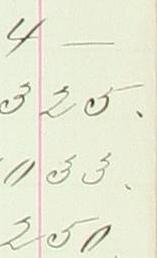 4 —
325.
1033.
250